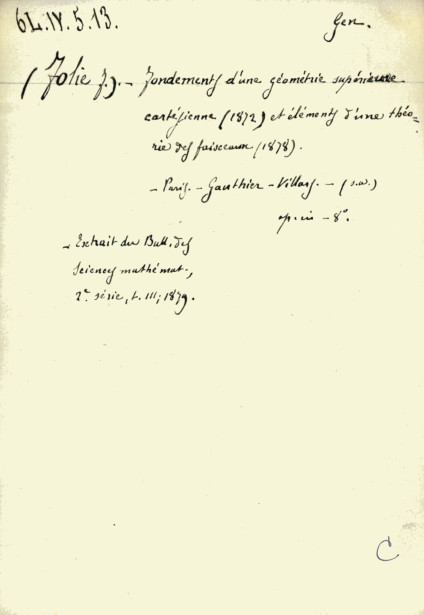 6L.IV.5.13.
Gen.
(Folie F.). — Fondements d'une géométrie supérieure
cartésienne (1872) et éléments d'une théo-
rie des faisceaux (1878).
— Paris. — Gauthier-Villars. — (s.a.)
op. in - 8°.
— Extrait du Bull. des
Sciences mathémat.,
2e série, t. III; 1879.
C